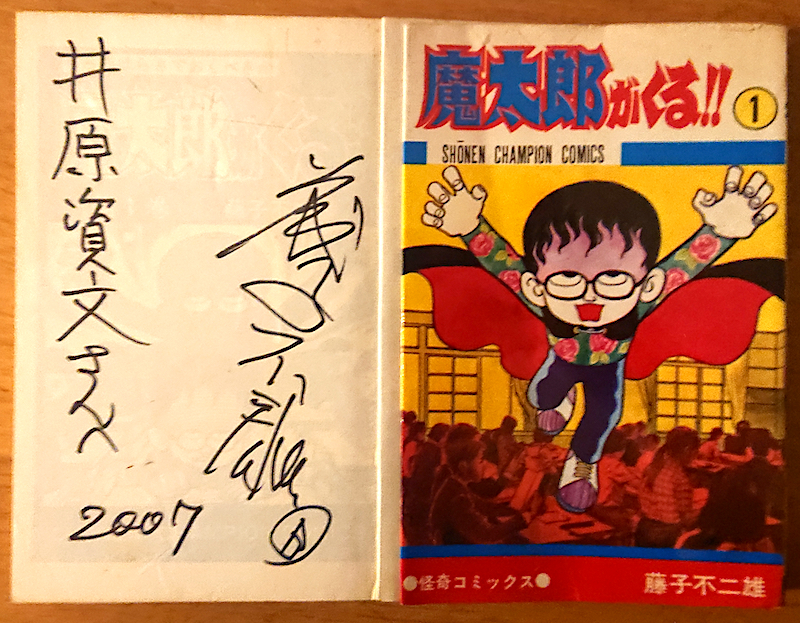 井原資文さんへ
藤子不二雄Ⓐ
2007
魔太郎がくる!!
1
SHŌNEN CHAMPION COMICS
●怪奇コミックス●
藤子不二雄